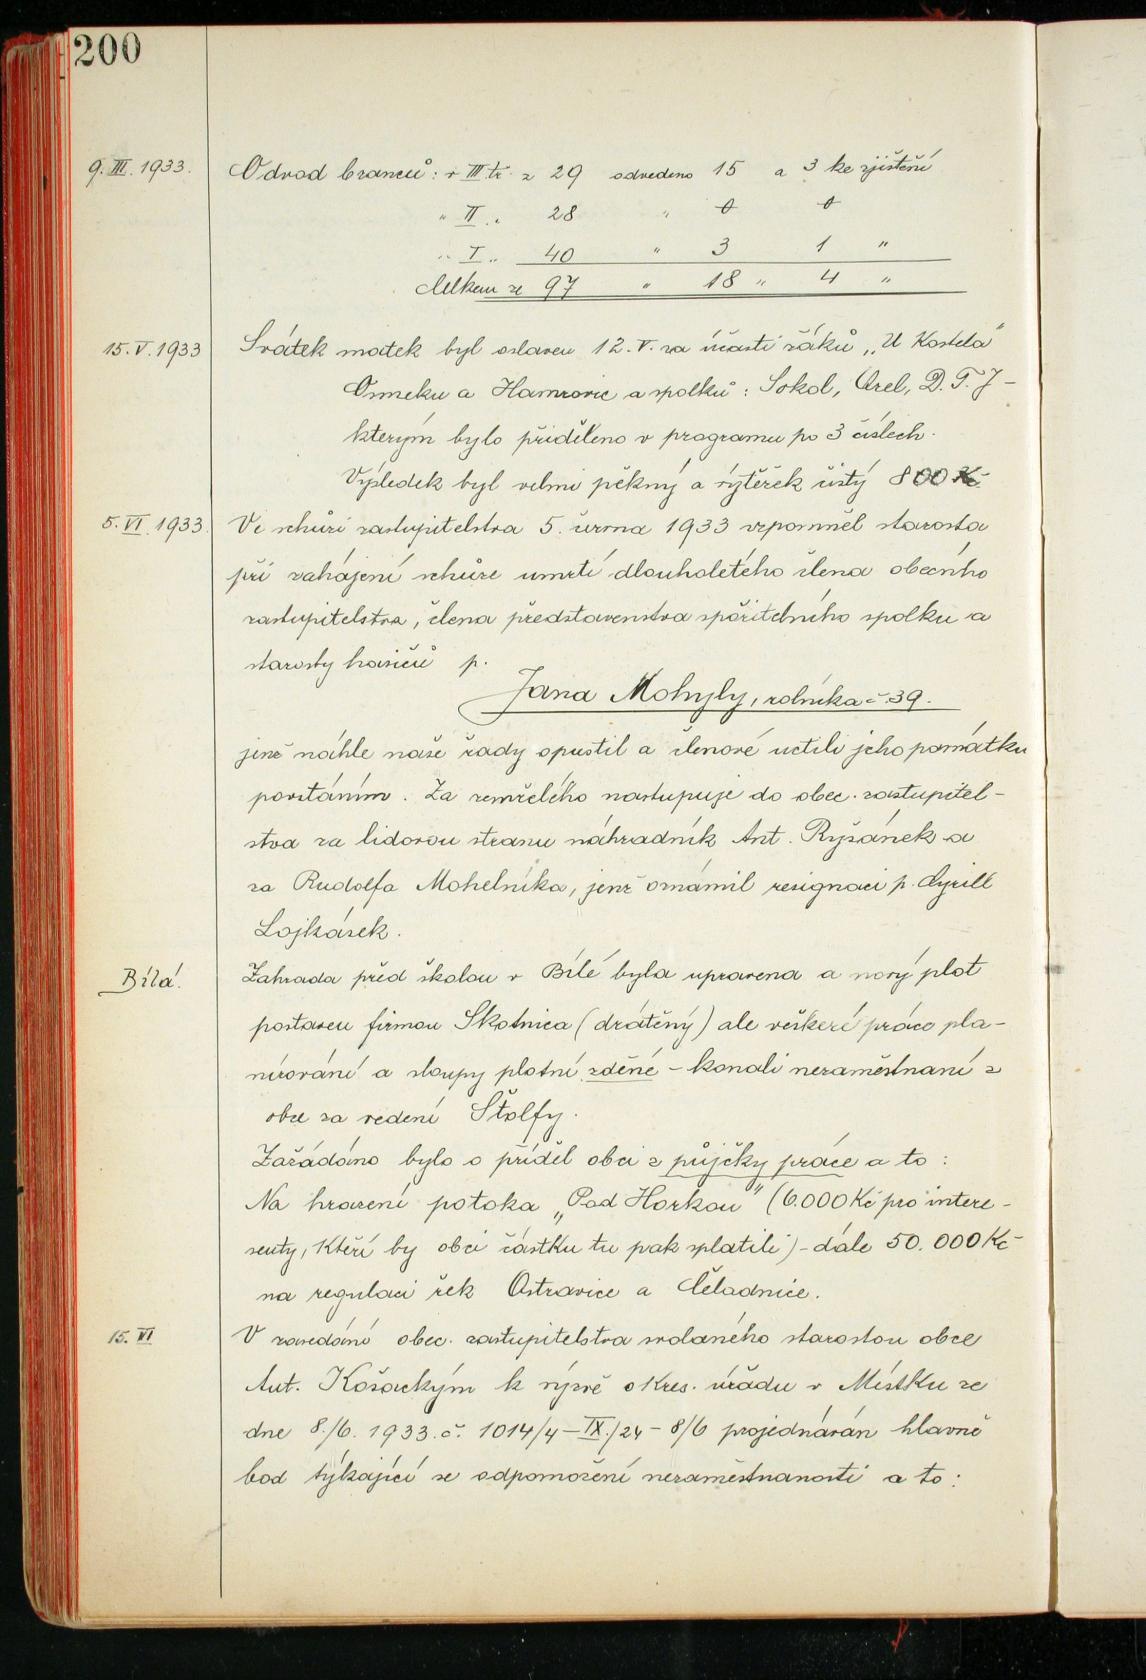 200
9. III. 1933. Odvod branců: v III. tř. z 29 odvedeno 15 a 3 ke zjištění
" II. " 28 " 0 0
" I. " 40 " 3 1 "
Celkem ze 97 " 18 " 4 "
15. V. 1933 Svátek matek byl oslaven 12. V. za účasti žáků „U Kostela"
Ommeku a Hamrovic a spolků: Sokol, Orel, D. T. J -
kterým bylo přiděleno v programu po 3 číslech.
Výsledek byl velmi pěkný a výtěžek čistý 800 Kč
5. VI. 1933. Ve schůzi zastupitelstva 5. června 1933 vzpomněl starosta
při zahájení schůze umrtí dlouholetého člena obecního
zastupitelstva, člena představenstva spořitelního spolku a
starosty hasičů p.
Jana Mohyly, rolníka č. 39.
jenž náhle naše řady opustil a členové uctili jeho památku
povstáním. Za zemřelého nastupuje do obec. zastupitel-
stva za lidovou stranu náhradník Ant. Ryšánek a
za Rudolfa Mohelníka, jenž oznámil resignaci p. Cyrill
Lojkásek.
Bílá. Zahrada před školou v Bílé byla upravena a nový plot
postaven firmou Skotnica (drátěný) ale veškeré práce pla-
nýrování a sloupy plotní zděné - konali nezaměstnaní z
obce za vedení Štolfy.
Zažádáno bylo o příděl obci z půjčky práce a to:
Na hrazení potoka „Pod Horkou" (6.000 Kč pro intere-
senty, kteří by obci částku tu pak splatili) - dále 50.000 Kč
na regulaci řek Ostravice a Čeladnice.
15. VI V zasedání obec. zastupitelstva svolaného starostou obce
Ant. Košackým k výzvě okres. úřadu v Místku ze
dne 8./6. 1933. č. 1014/4 - IX./24 - 8/6 projednáván hlavně
bod týkající se odpomožení nezaměstnanosti a to: